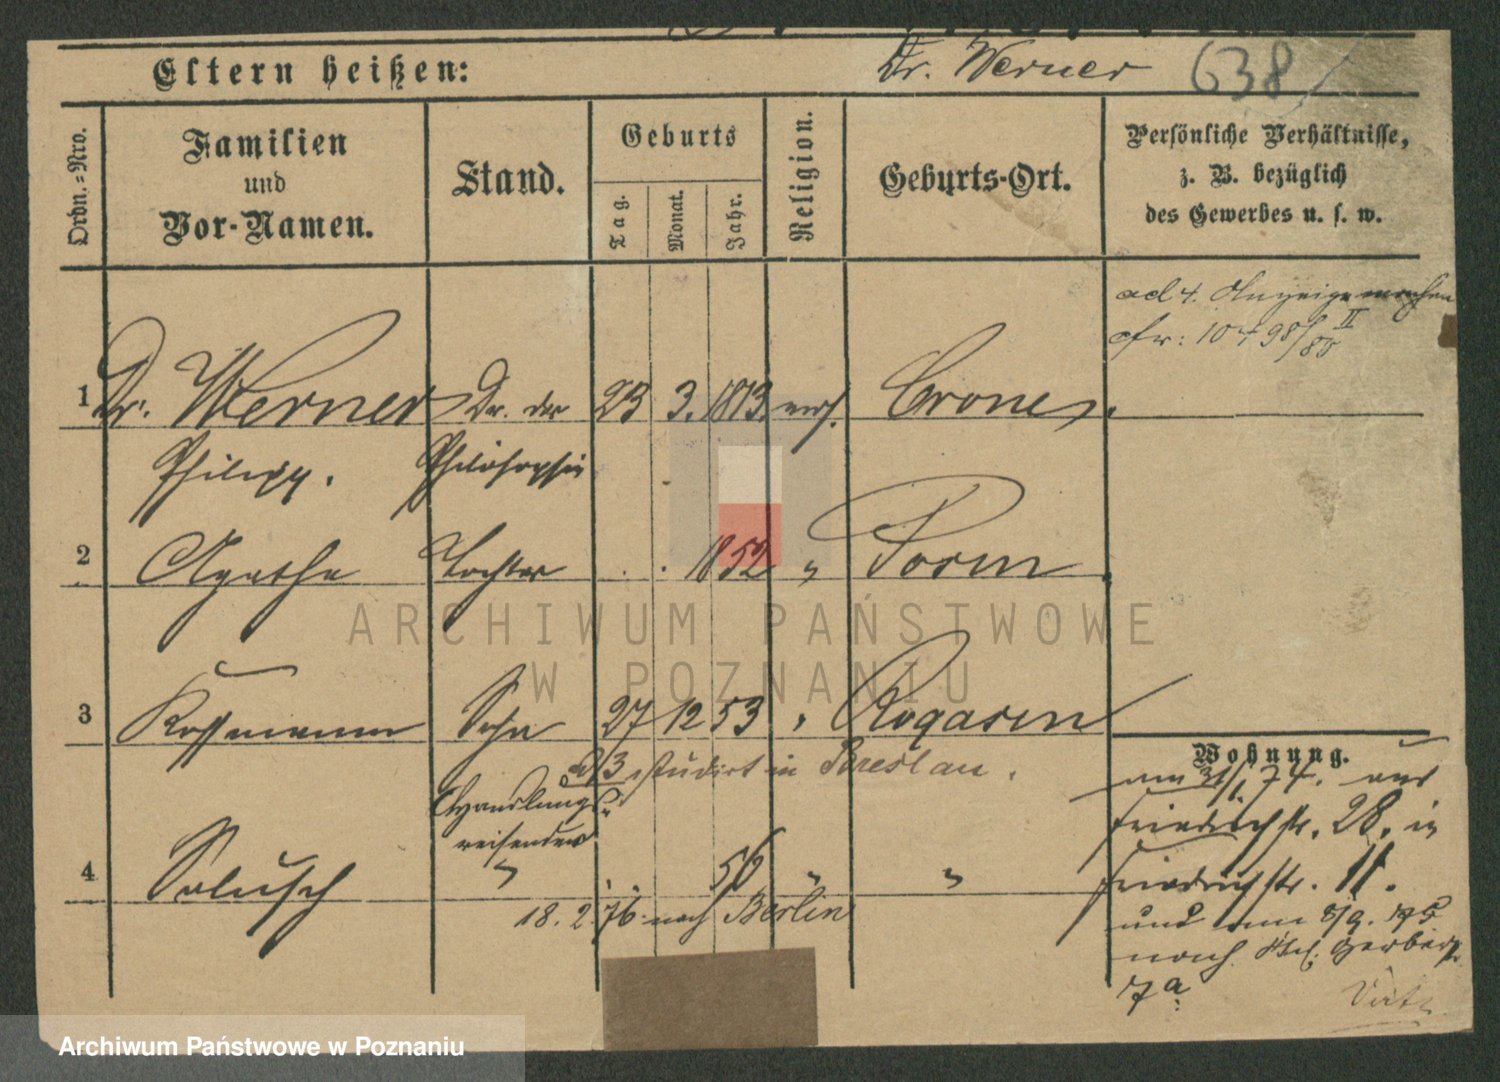 Eltern heißen:
Dr. Werner 638
Ordn.=Nro.
Familien
und
Vor-Namen.
Stand.
Geburts
Tag.
Monat.
Jahr.
Religion.
Geburts-Ort.
Persönliche Verhältnisse,
z. B. bezüglich
des Gewerbes u. s. w.
ad 4. Anzeige machen
cfr: 10798/80 II
1 Dr. Werner Dr. der 23 3. 1813. mos. Crone
Philipp. Philosophie
2 Agathe Tochter 1852 " Posen
3 Kossmann Sohn 27 12 53 " Rogasen
ad 3 studirt in Breslau.
Handlungs-
reisender
4 Salusch " 56 " "
18. 2. 76 nach Berlin
Wohnung.
am 31/1. 74. aus
Friedrichstr. 28. in
Friedrichstr. 11.
und am 8/9. 75
nach Kl. Gerberstr.
7a.
ARCHIWUM PAŃSTWOWE
W POZNANIU
Archiwum Państwowe w Poznaniu